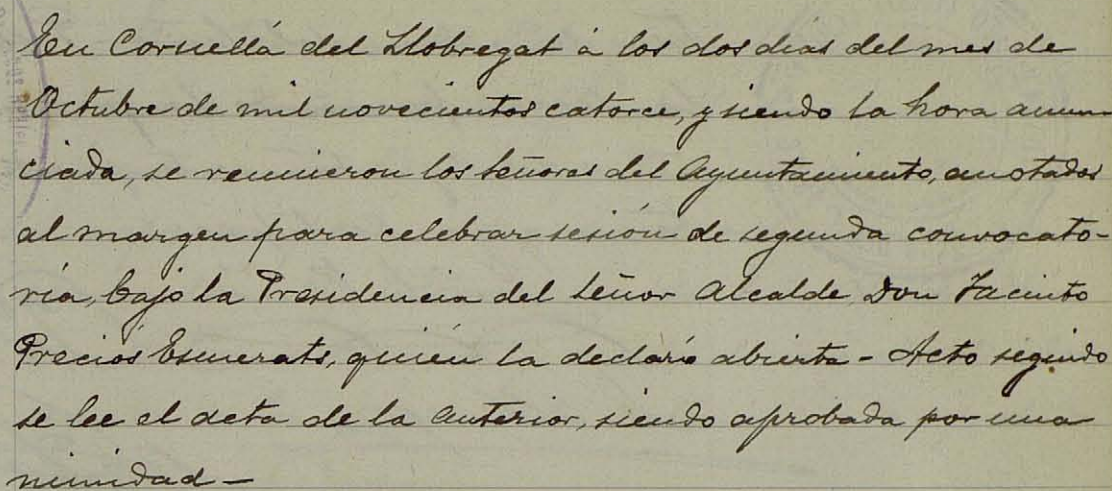 En Cornellá del Llobregat á los dos dias del mes de
Octubre de mil novecientos catorce, y siendo la hora anun-
ciada, se reunieron los señores del Ayuntamiento, anotados
al margen para celebrar sesión de segunda convocato-
ria, bajo la Presidencia del señor Alcalde Don Jacinto
Precios Esmerats, quién la declaró abierta - Acto seguido
se lee el acta de la anterior, siendo aprobada por una
nimidad -